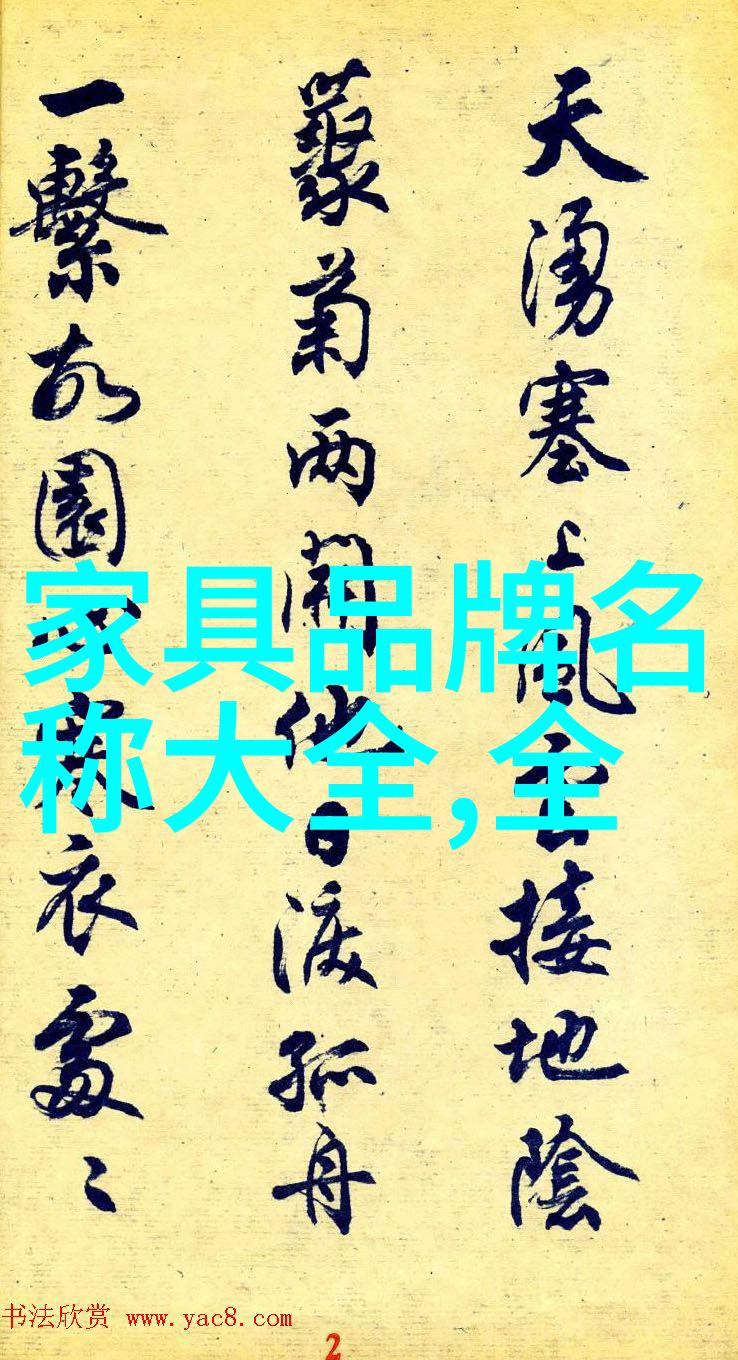 天湧塞上風雲接地陰
藂菊两開他日淚孤舟
一繫故園心寒衣處〻
家具品牌名
称大全,全
书法欣赏 www.yac8.com
2